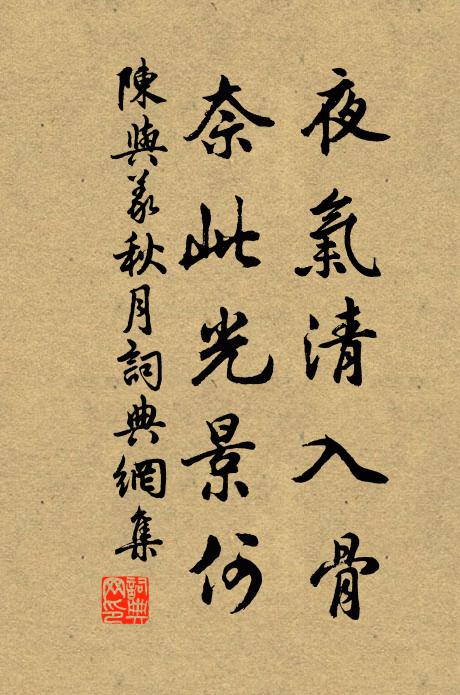 夜氣清入骨
奈此光景何
陳與義秋月詞典網集
詞典網印